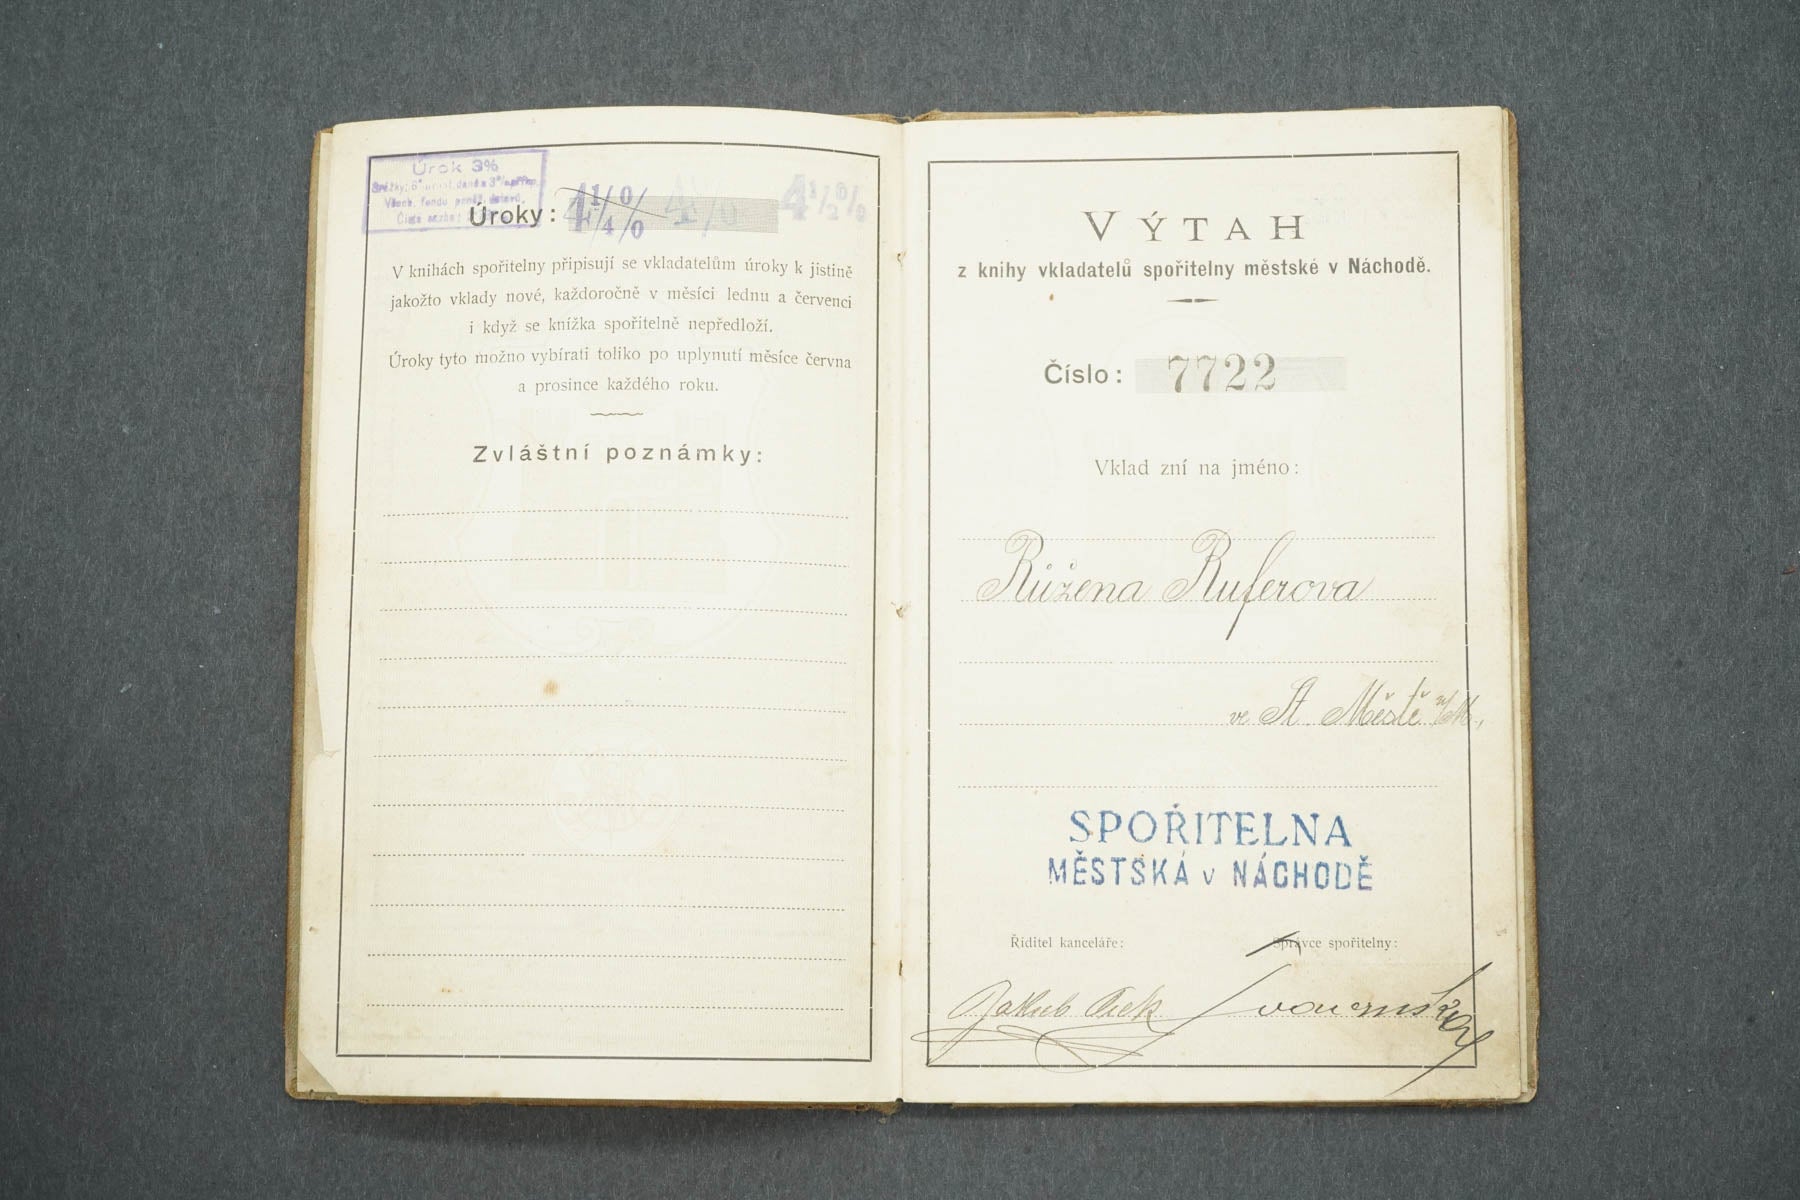 Úrok 3%
Všech. fondu peněž. ústavů.
Úroky: 4 1/4 % 4% 4 1/2 %
V knihách spořitelny připisují se vkladatelům úroky k jistině
jakožto vklady nové, každoročně v měsíci lednu a červenci
i když se knížka spořitelně nepředloží.
Úroky tyto možno vybírati toliko po uplynutí měsíce června
a prosince každého roku.
Zvláštní poznámky:
VÝTAH
z knihy vkladatelů spořitelny městské v Náchodě.
Číslo: 7722
Vklad zní na jméno:
Růžena Ruferova
ve St. Městě n/M.,
SPOŘITELNA
MĚSTSKÁ v NÁCHODĚ
Řiditel kanceláře: Správce spořitelny:
Jakub